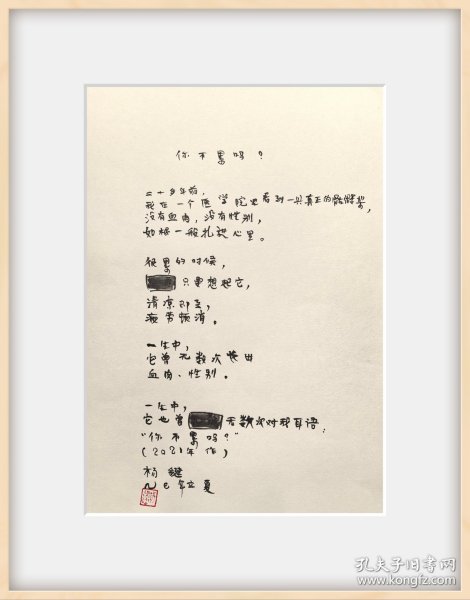 你不累吗？
二十多年前，
我在一个医学院里看到一具真正的骷髅架，
没有血肉，没有性别，
如根一般扎进心里。
很累的时候，
只要想起它，
清凉即至，
疲劳顿消。
一生中，
它曾无数次长出
血肉、性别。
一生中，
它也曾无数次对我耳语：
“你不累吗？”
（2021年作）
杨键
立夏
孔夫子旧书网
www.kongfz.com